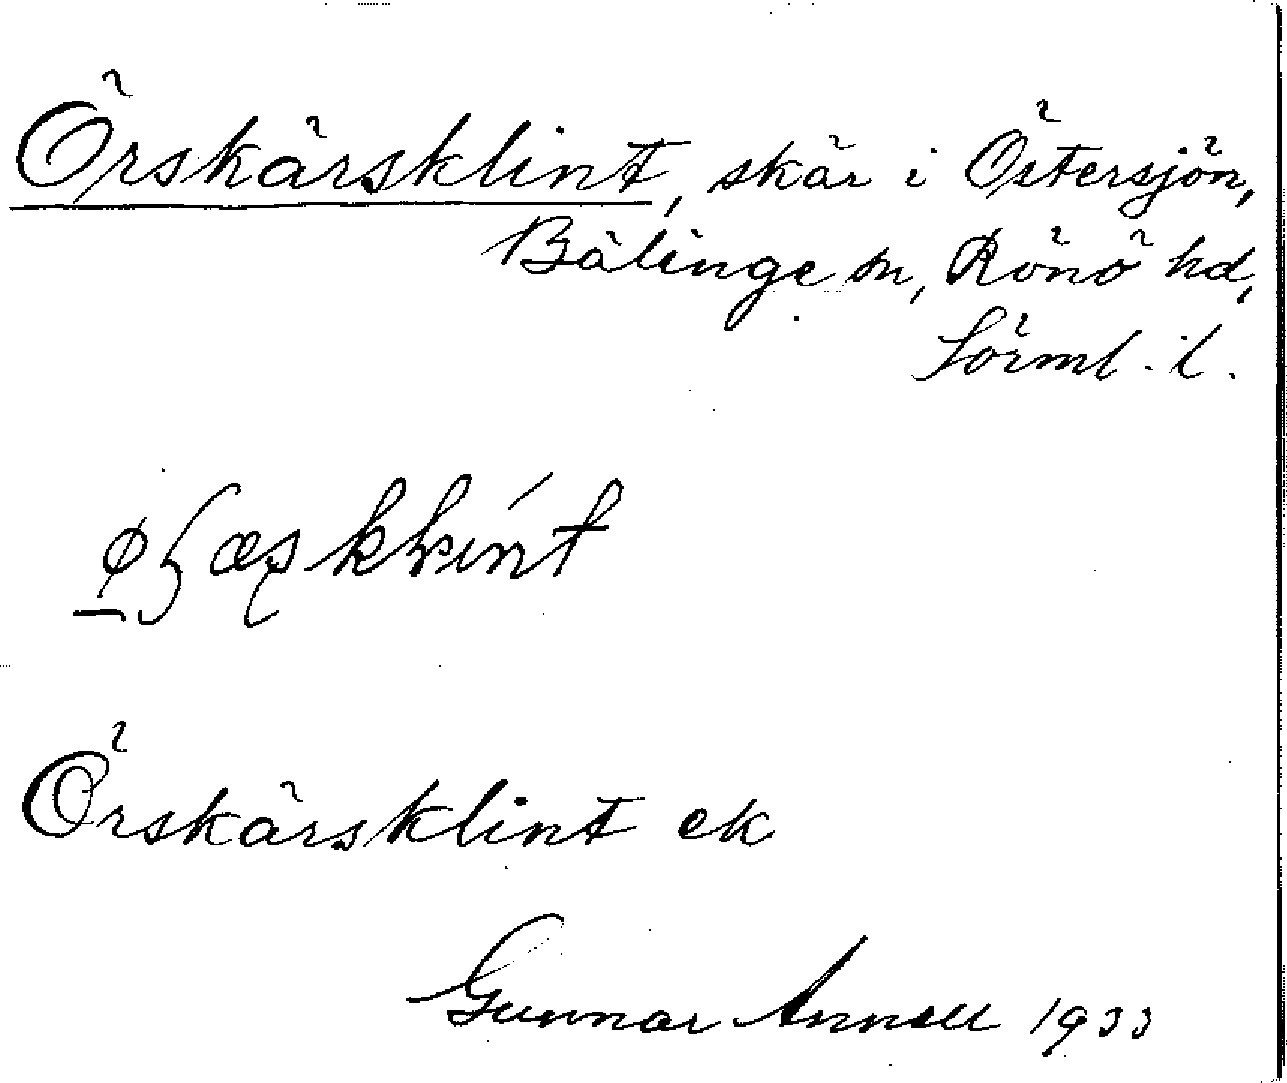 Örskärsklint, skär i Östersjön,
Bälinge sn, Rönö hd,
Sörml. l.
Örskärsklint ek
Gunnar Annell 1933